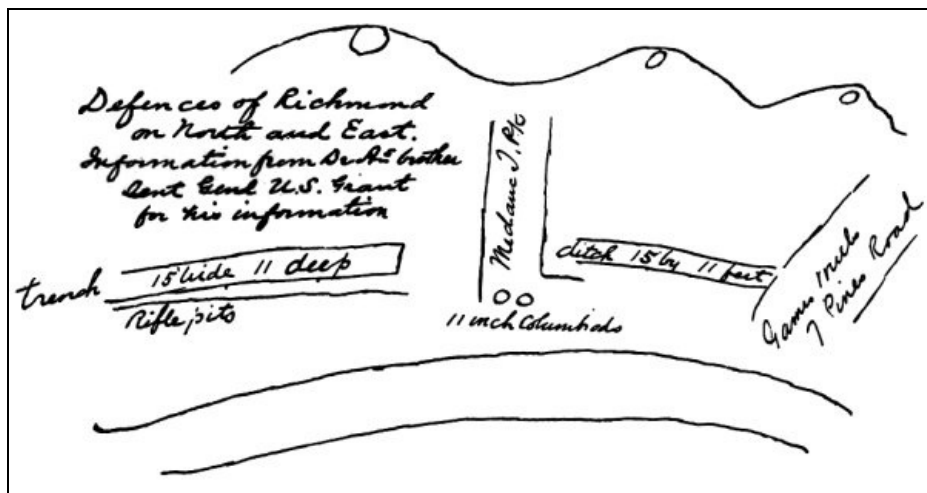 Defences of Richmond
on North and East.
Information from Dr A's brother
Sent Genl U.S. Grant
for his information
Mechanc T. P/6
trench
15 wide 11 deep
Rifle pits
ditch 15 by 11 feet
11 inch Columbiads
7 Pines Road